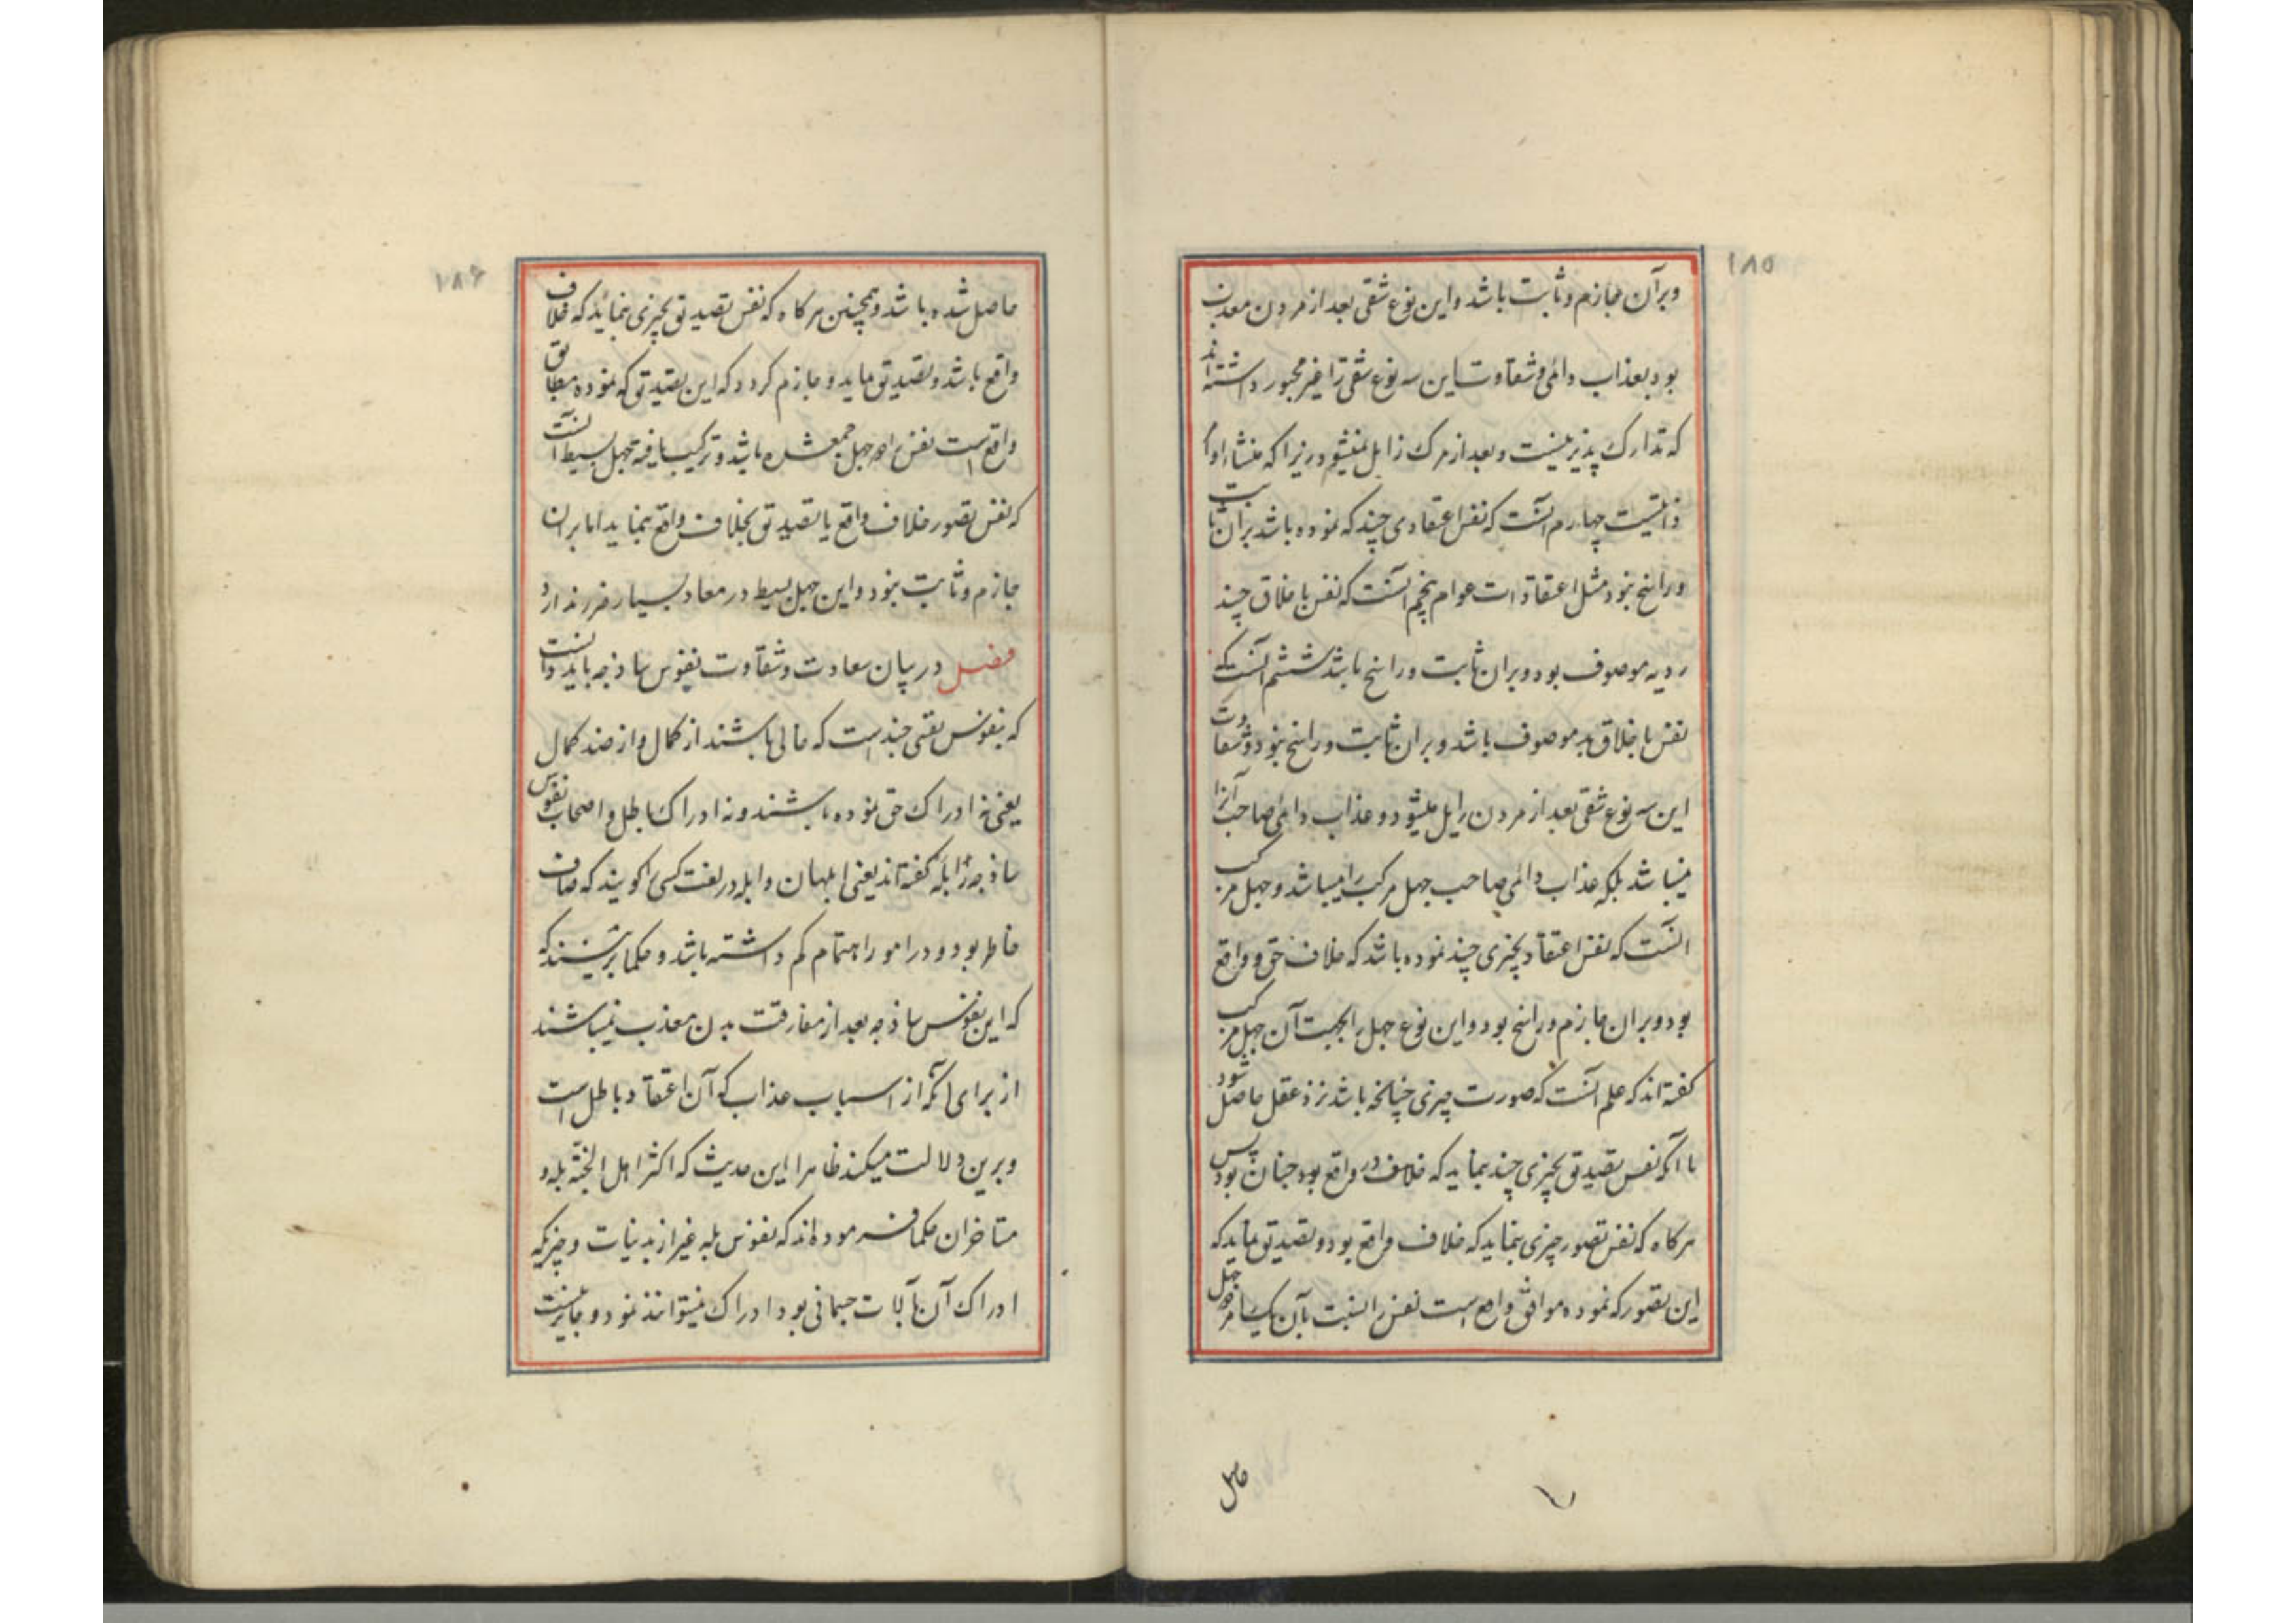 ۱۸۵
وبرآن جازم وثابت باشد واین نوع شقی بعد از مردن معذب
بود بعذاب دائمی وشقاوت این سه نوع شقی را غیر مجبور داشته اند
که تدارک پذیر نیست و بعد از مرک زایل نمیشود زیرا که منشاء او
ذاتیست چهارم آنست که نفس اعتقادی چند که نموده باشد بران ثابت
وراسخ نبود مثل اعتقادات عوام پنجم آنست که نفس باخلاق چند
ردیه موصوف بود وبران ثابت وراسخ باشد ششم آنست که
نفس باخلاق بد موصوف باشد وبران ثابت وراسخ نبود وشقاوت
این سه نوع شقی بعد از مردن زایل میشود وعذاب دائمی صاحب آنرا
نمیباشد بلکه عذاب دائمی صاحب جهل مرکب را میباشد وجهل مرکب
آنست که نفس اعتقاد بچیزی چند نموده باشد که خلاف حق وواقع
بود وبران جازم وراسخ بود واین نوع جهل را بجهت آن جهل مرکب
کفته اند که علم آنست که صورت چیزی چنانچه باشد نزد عقل حاصل شود
با آنکه نفس تصدیق بچیزی چند نماید که خلاف در واقع بود چنان بود پس
هرکاه که نفس تصور چیزی بنماید که خلاف واقع بود وتصدیق نماید که
این تصور که نموده موافق واقع است نفس را نسبت بآن یکبار جهل
حاصل
۱۸۶
حاصل شده باشد وهمچنین هرکاه که نفس تصدیق بچیزی بنماید که خلاف
واقع باشد وتصدیق نماید و جازم کردد که این تصدیق که نموده مطابق
واقع است نفس را دو جهل جمع شده باشد وترکیب یافته وجهل بسیط آنست
که نفس تصور خلاف واقع یا تصدیق بخلاف واقع بنماید اما بران
جازم وثابت نبود واین جهل بسیط در معاد بسیار ضرر ندارد
فصل در بیان سعادت وشقاوت نفوس ساذجه باید دانست
که نفوس نفسی چند است که خالی باشند از کمال واز ضد کمال
یعنی نه ادراک حق نموده باشند ونه ادراک باطل واصحاب نفوس
ساذجه را بله کفته اند یعنی ابلهان وابله در لغت کسی را کویند که صاف
خاطر بود ودر امور اهتمام کم داشته باشد وحکما برینند که
که این نفوس ساذجه بعد از مفارقت بدن معذب نمیباشند
از برای آنکه از اسباب عذاب که آن اعتقاد باطل است
وبرین دلالت میکند ظاهرا این حدیث که اکثر اهل الجنة بله و
متاخران حکما فرموده اند که نفوس بله غیر از بدنیات وچیزیکه
ادراک آن بآلات جسمانی بود ادراک نمیتوانند نمود وجایز نیست